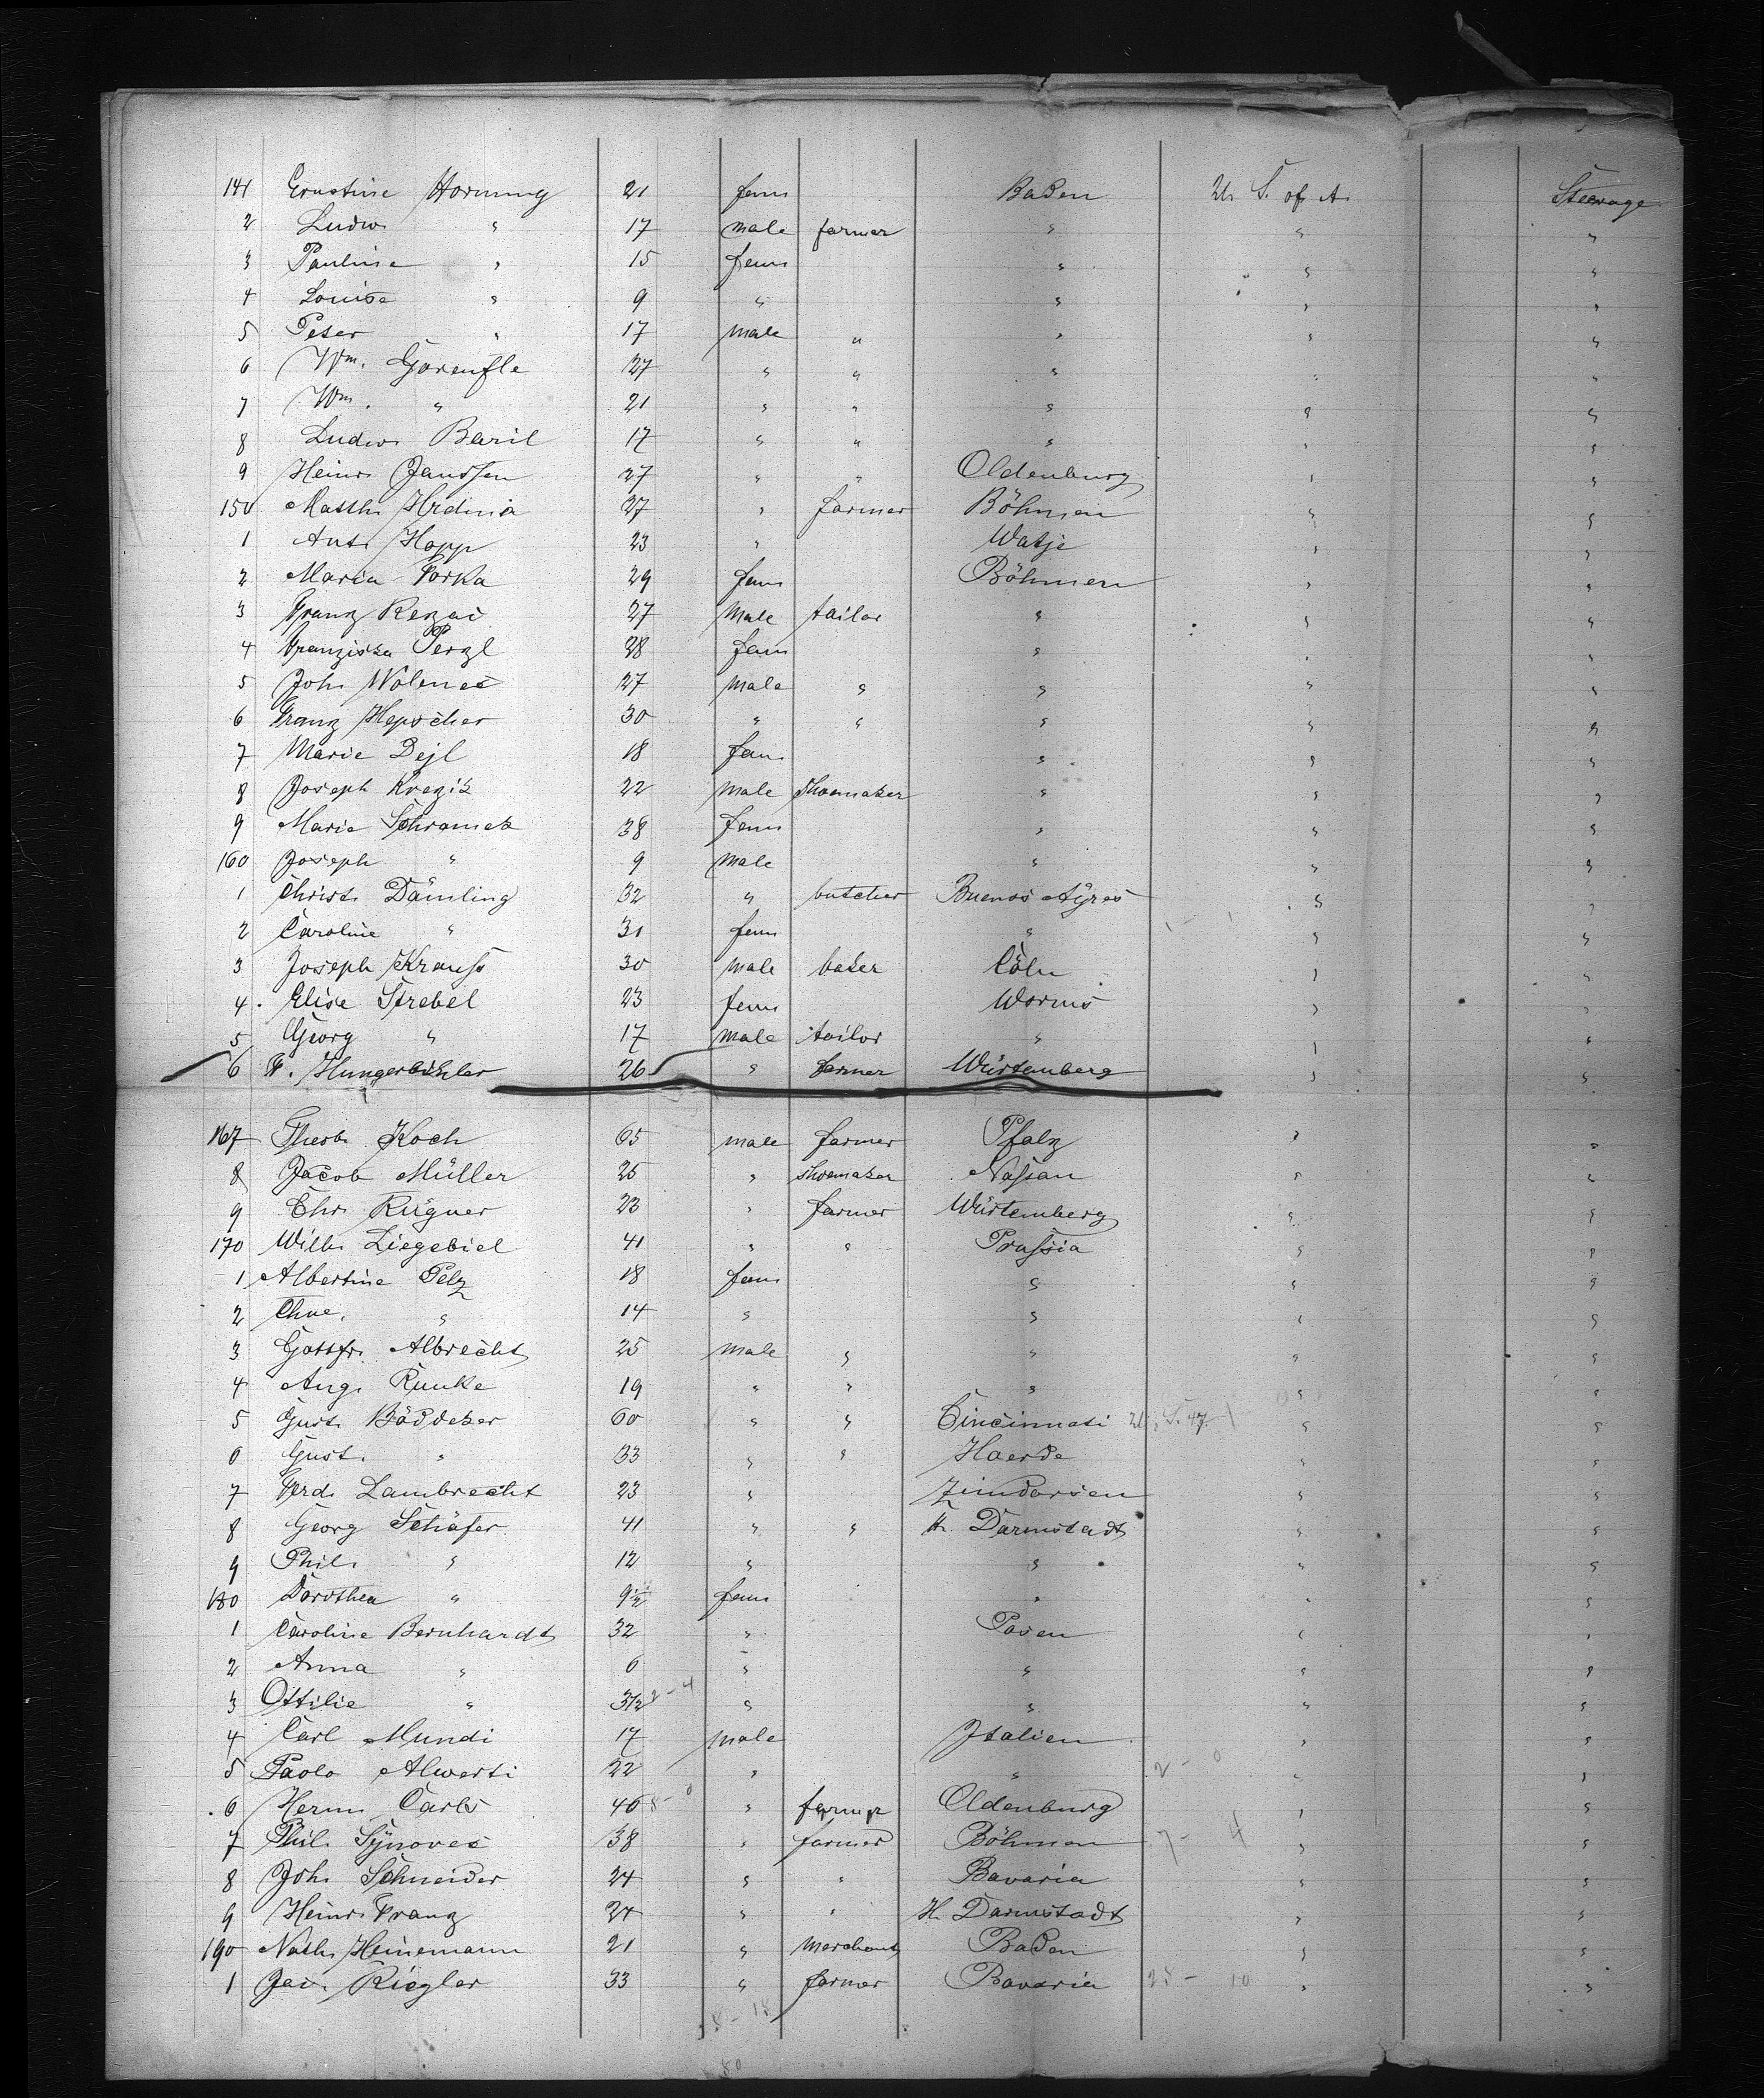 141 Ernstine Hornung 21 fem Baden U. S. of A. Steerage
2 Ludw. " 17 male farmer " " "
3 Pauline " 15 fem " " "
4 Louise " 9 " " " "
5 Peter " 17 male " " " "
6 Wm. Gorenfle 27 " " " " "
7 Wm. " 21 " " " " "
8 Ludw. Baril 17 " " " " "
9 Heinr. Janssen 27 " " Oldenburg " "
150 Matth. Hrdina 27 " farmer Böhmen " "
1 Ant. Hopp 23 " Watje " "
2 Maria Torka 29 fem Böhmen " "
3 Franz Rezac 27 male tailor " " "
4 Franziska Perzl 28 fem " " "
5 Joh. Wolenec 27 male " " " "
6 Franz 30 " " " " "
7 Marie Dejl 18 fem " " "
8 Joseph Krezik 22 male shoemaker " " "
9 Marie Schramek 38 fem " " "
160 Joseph " 9 male " " "
1 Christ. Dämling 32 " butcher Buenos Ayres " "
2 Caroline " 31 fem " " "
3 Joseph Krauss 30 male baker Cöln " "
4 Elise Strebel 23 fem Worms " "
5 Georg " 17 male tailor " " "
6 F. Hungerbühler 26 " farmer Würtemberg " "
167 Theob. Koch 65 male farmer Pfalz " "
8 Jacob Müller 25 " shoemaker Nassau " "
9 Chr. Rügner 23 " farmer Würtemberg " "
170 Wilh. Liegebiel 41 " " Prussia " "
1 Albertine Pelz 18 fem " " "
2 Chne. " 14 " " " "
3 Gottfr. Albrecht 25 male " " " "
4 Aug. Runke 19 " " " " "
5 Gust. Böddeker 60 " " Cincinnati U. S. " "
6 Gust. " 33 " " Haerde " "
7 Ferd. Lambrecht 23 " Zimdarsen " "
8 Georg Schäfer 41 " " H. Darmstadt " "
9 Phil. " 12 " " " "
180 Dorothea " 9½ fem " " "
1 Caroline Bernhardt 32 " Posen " "
2 Anna " 6 " " " "
3 Ottilie " 3½ " " " "
4 Carl Mundi 17 male Italien " "
5 Paolo Alwerti 22 " " " "
6 Herm. Carls 40 " farmer Oldenburg " "
7 Phil. Synovec 38 " farmer Böhmen 7- 4 " "
8 Joh. Schneider 24 " " Bavaria " "
9 Heinr. Franz 24 " " H. Darmstadt " "
190 Nath. Heinemann 21 " merchant Baden " "
1 Jac. Riegler 33 " farmer Bavaria 25- 10 " "